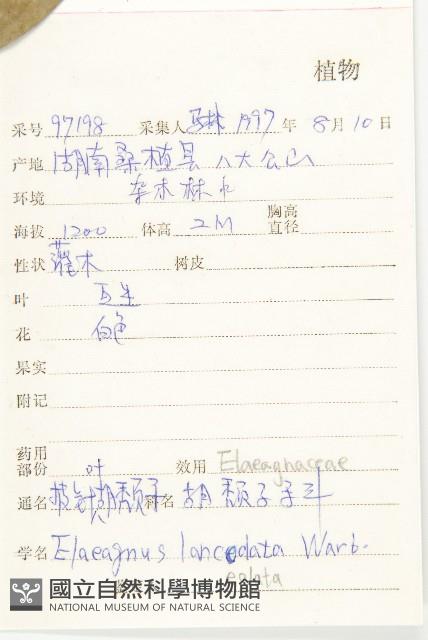 植物
采号 97198 采集人 馬林 1997年 8月10日
产地 湖南桑植县 八大公山
环境 杂木林中
海拔 1200 体高 2M 胸高直径
性状 灌木 树皮
叶 互生
花 白色
果实
附记
药用部份 叶 效用 Elaeagnaceae
通名 披针胡颓子 科名 胡颓子科
学名 Elaeagnus lanceolata Warb.
eolata
國立自然科學博物館
NATIONAL MUSEUM OF NATURAL SCIENCE